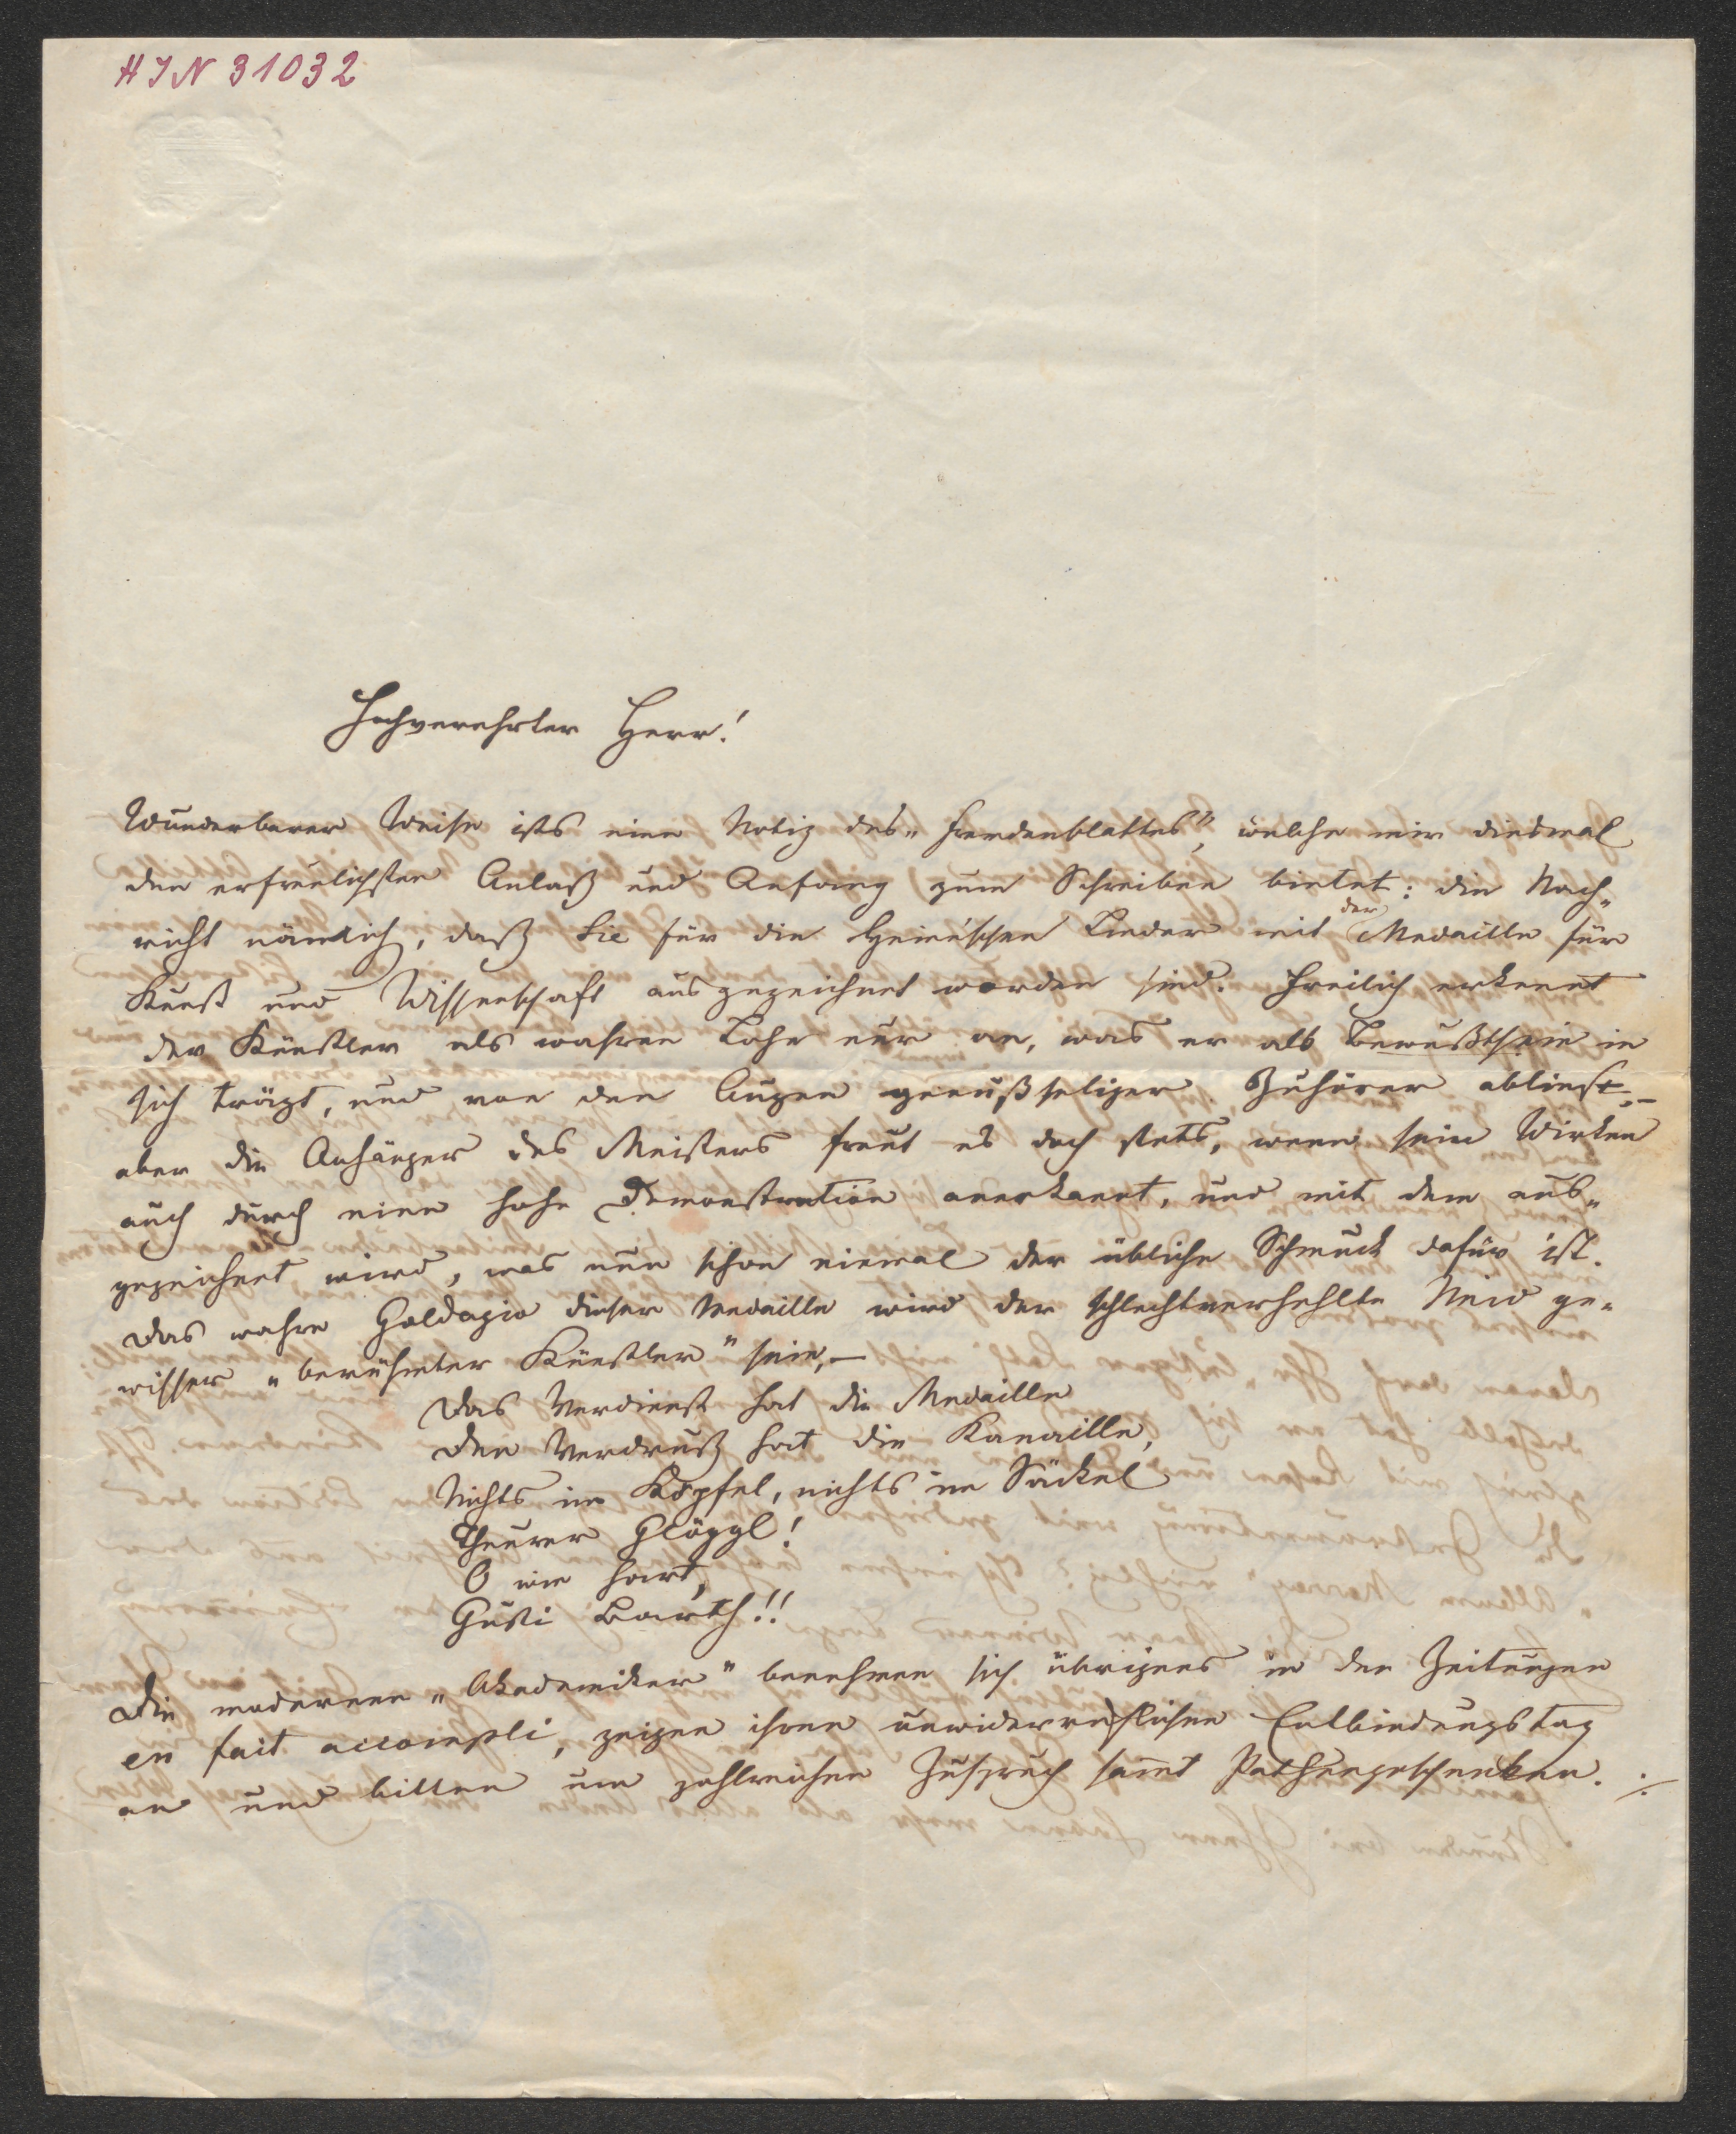 HIN 31032
Hochverehrter Herr!
Wunderbarer Weise ists eine Notiz des „Fremdenblattes", welche mir diesmal
den erfreulichsten Anlaß und Anfang zum Schreiben bietet: die Nach-
richt nämlich, daß Sie für die Heine'schen Lieder mit der Medaille für
Kunst und Wissenschaft ausgezeichnet worden sind. Freilich erkennt
der Künstler als wahren Lohn nur an, was er als Bewußtsein in
sich trägt, und von den Augen genußseliger Zuhörer abliest,–
aber die Anhänger des Meisters freut es doch stets, wenn sein Wirken
auch durch eine hohe Demonstration anerkannt, und mit dem aus-
gezeichnet wird, was nun schon einmal der übliche Schmuck dafür ist.
Das wahre Goldagio dieser Medaille wird der schlechtverhehlte Neid ge-
wisser „berühmter Künstler" sein,–
Das Verdienst hat die Medaille
Den Verdruß hat die Kanaille,
Nichts im Köpfel, nichts im Säckel
Theurer Glöggl!
O wie hart,
Gusti Barth!!
Die modernen „Akademiker" benehmen sich übrigens in den Zeitungen
en fait accompli, zeigen ihren unwiderruflichen Entbindungstag
an und bitten um zahlreichen Zuspruch sammt Pathengeschenken. ./.